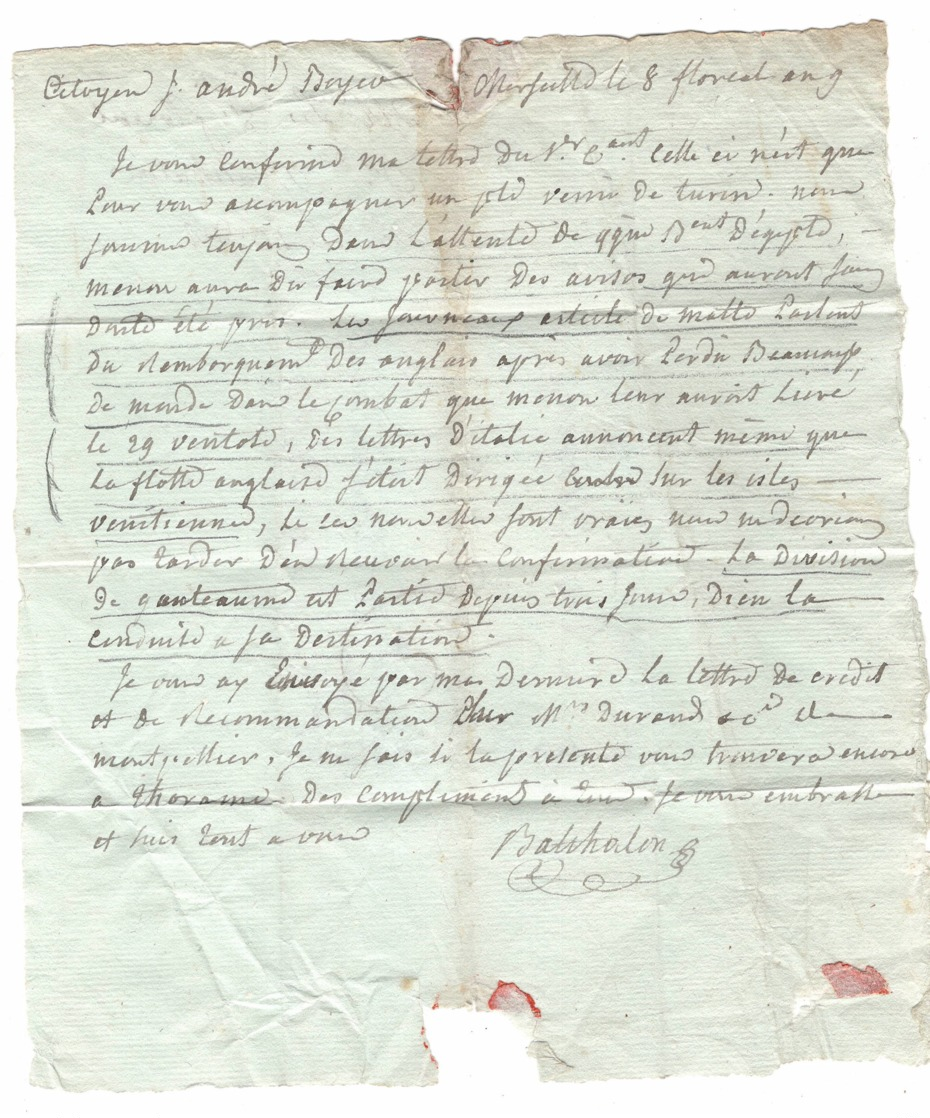 Citoyen J. andré Boyer Marseille le 8 floreal an 9
Je vous Confirme ma lettre du 1.er C.ant Celle ci n'est que
Pour vous acompagner un pli venu de turin. nous
somme toujours Dans L'attente de qque Bent D'égypte,
menou aura Dû faire partir Des avisos que auront sans
doute été pris. Les Journeaux article de malte Parlent
du Remborquemt Des anglais apres avoir Perdu Beaucoup
de monde Dans le Combat que menou leur auroit Livré
le 29 ventose, Des lettres D'italie annoncent même que
La flotte anglaise s'étoit Dirigée sur les isles
venitiennes, Si ces nouvelles sont vraies nous ne devrions
pas tarder D'en Recevoir la Confirmation. La Division
de ganteaume est Partie Depuis trois Jours, Dieu La
Conduise a sa Destination.
Je vous ay Envoyé par ma Derniere La lettre de credit
et de Recommandation Pour Mrs Durand & Ce de
montpellier. Je ne sais si la presente vous trouvera encore
a thorame. Des Compliments à Tous. Je vous embrasse
et suis tout a vous Balthalon